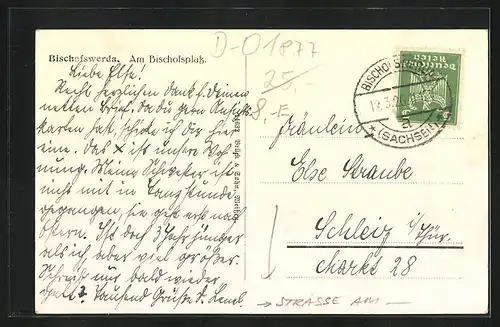 Bischofswerda. Am Bischofsplatz.
D-01877
25,-
8,-E
Liebe Else!
Recht herzlichen Dank f. Deinen
netten Brief. Da du gern Ansichts
karten hast, schicke ich dir hier
eine. Das x ist unsre Woh
nung. Meine Schwester ist
nicht mit in Tanzstunde
gegangen, sie geht erst nach
Ostern. Ist doch 3 Jahr jünger
als ich aber viel größer.
Schreib nur bald wieder
Tausend Grüße d.
BISCHOFSWERDA
(SACHSEN)
Deutsches Reich
5
Fräulein
Else Straube
Schleiz i/Thür.
Markt 28
→ STRASSE AM —